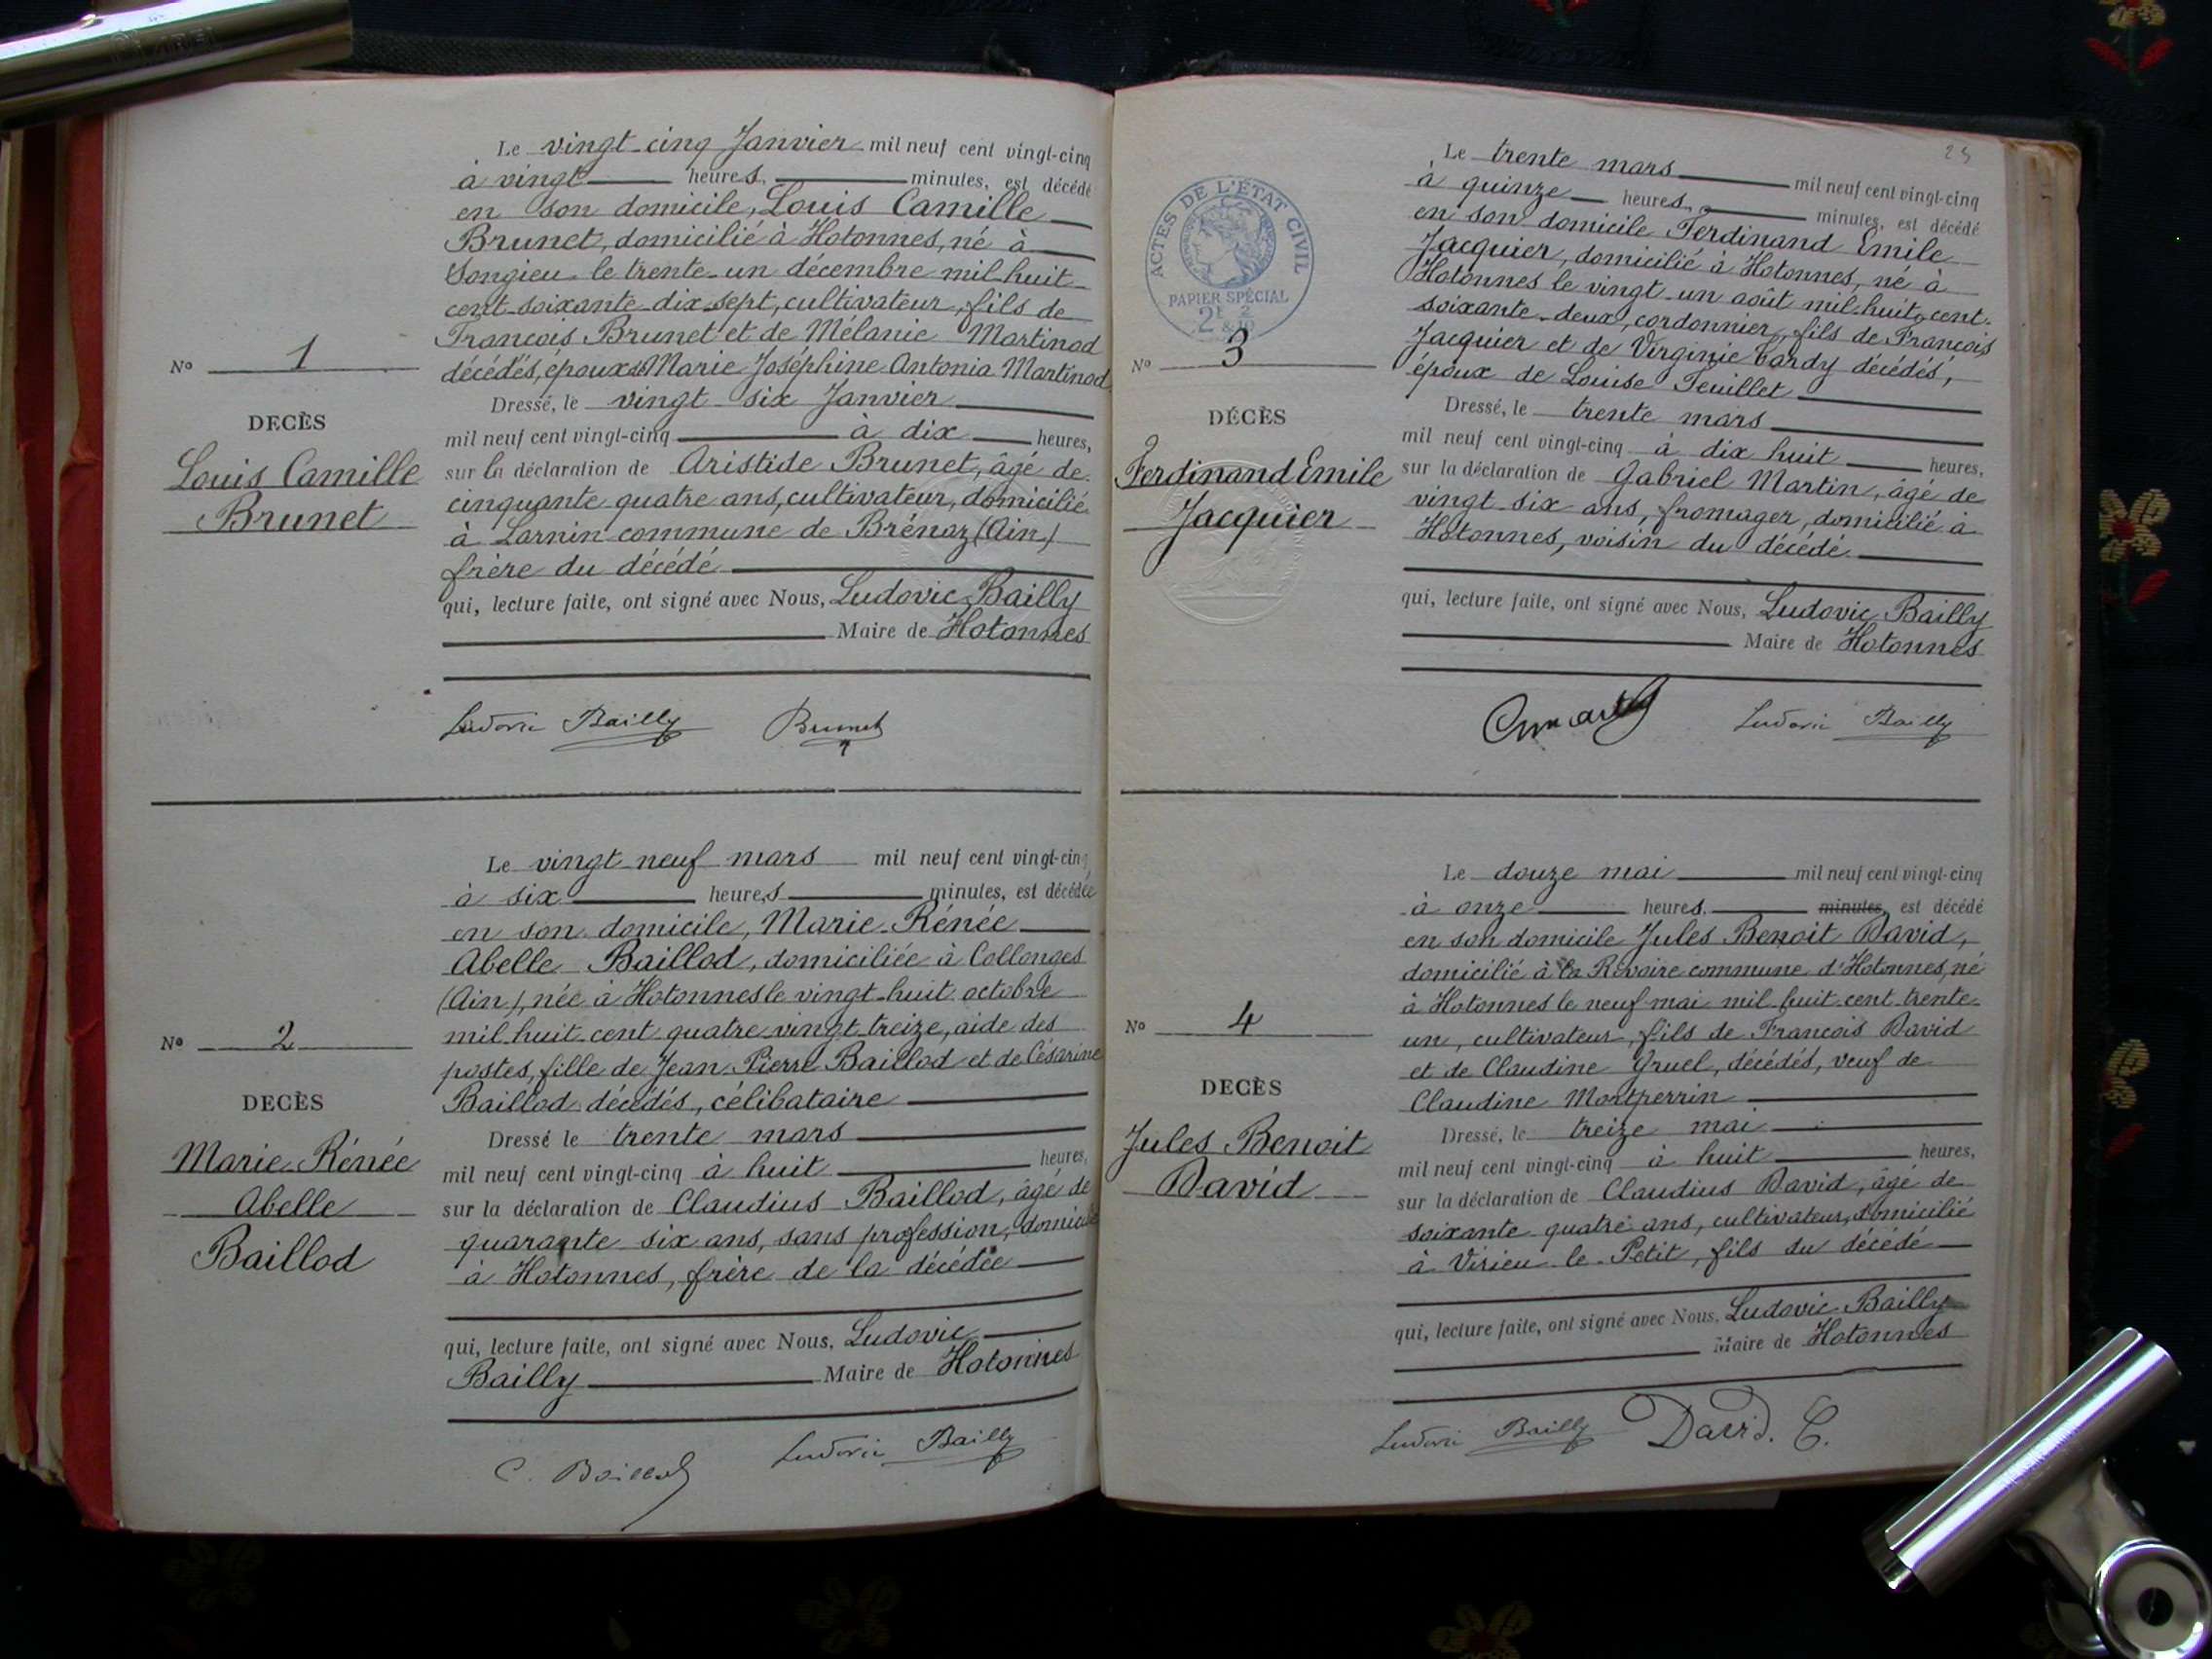 Le vingt-cinq Janvier mil neuf cent vingt-cinq
à vingt heures, minutes, est décédé
en son domicile, Louis Camille
Brunet, domicilié à Hotonnes, né à
Songieu le trente-un décembre mil huit
cent soixante dix sept, cultivateur, fils de
François Brunet et de Mélanie Martinod
décédés, époux de Marie Joséphine Antonia Martinod
Dressé, le vingt six Janvier
mil neuf cent vingt-cinq à dix heures,
sur la déclaration de Aristide Brunet, âgé de
cinquante quatre ans, cultivateur, domicilié
à Larnin commune de Brénaz (Ain)
frère du décédé
qui, lecture faite, ont signé avec Nous, Ludovic Bailly
Maire de Hotonnes
Nº 1
DECÈS
Louis Camille
Brunet
Ludovic Bailly Brunet
Le vingt neuf mars mil neuf cent vingt-cinq
à six heures minutes, est décédée
en son domicile, Marie Rénée
Abelle Baillod, domiciliée à Collonges
(Ain), née à Hotonnes le vingt-huit octobre
mil huit cent quatre vingt treize, aide des
postes, fille de Jean Pierre Baillod et de Césarine
Baillod décédés, célibataire
Dressé le trente mars
mil neuf cent vingt-cinq à huit heures,
sur la déclaration de Claudius Baillod, âgé de
quarante six ans, sans profession, domicilié
à Hotonnes, frère de la décédée
qui, lecture faite, ont signé avec Nous, Ludovic
Bailly Maire de Hotonnes
Nº 2
DECÈS
Marie Rénée
Abelle
Baillod
C. Baillod Ludovic Bailly
23
ACTES DE L'ÉTAT CIVIL
PAPIER SPÉCIAL
Le trente mars mil neuf cent vingt-cinq
à quinze heures, minutes, est décédé
en son domicile Ferdinand Emile
Jacquier, domicilié à Hotonnes, né à
Hotonnes le vingt un août mil huit cent
soixante-deux, cordonnier, fils de François
Jacquier et de Virginie Tardy décédés,
époux de Louise Feuillet
Dressé, le trente mars
mil neuf cent vingt-cinq à dix huit heures,
sur la déclaration de Gabriel Martin, âgé de
vingt six ans, fromager, domicilié à
Hotonnes, voisin du décédé
qui, lecture faite, ont signé avec Nous, Ludovic Bailly
Maire de Hotonnes
Nº 3
DÉCÈS
Ferdinand Emile
Jacquier
Ludovic Bailly
Le douze mai mil neuf cent vingt-cinq
à onze heures, minutes, est décédé
en son domicile Jules Benoit David,
domicilié à la Revoire commune d'Hotonnes, né
à Hotonnes le neuf mai mil huit cent trente
un, cultivateur, fils de François David
et de Claudine Gruel, décédés, veuf de
Claudine Montperrin
Dressé, le treize mai
mil neuf cent vingt-cinq à huit heures,
sur la déclaration de Claudius David, âgé de
soixante quatre ans, cultivateur, domicilié
à Virieu le Petit, fils du décédé
qui, lecture faite, ont signé avec Nous, Ludovic Bailly
Maire de Hotonnes
Nº 4
DECÈS
Jules Benoit
David
Ludovic Bailly David. C.